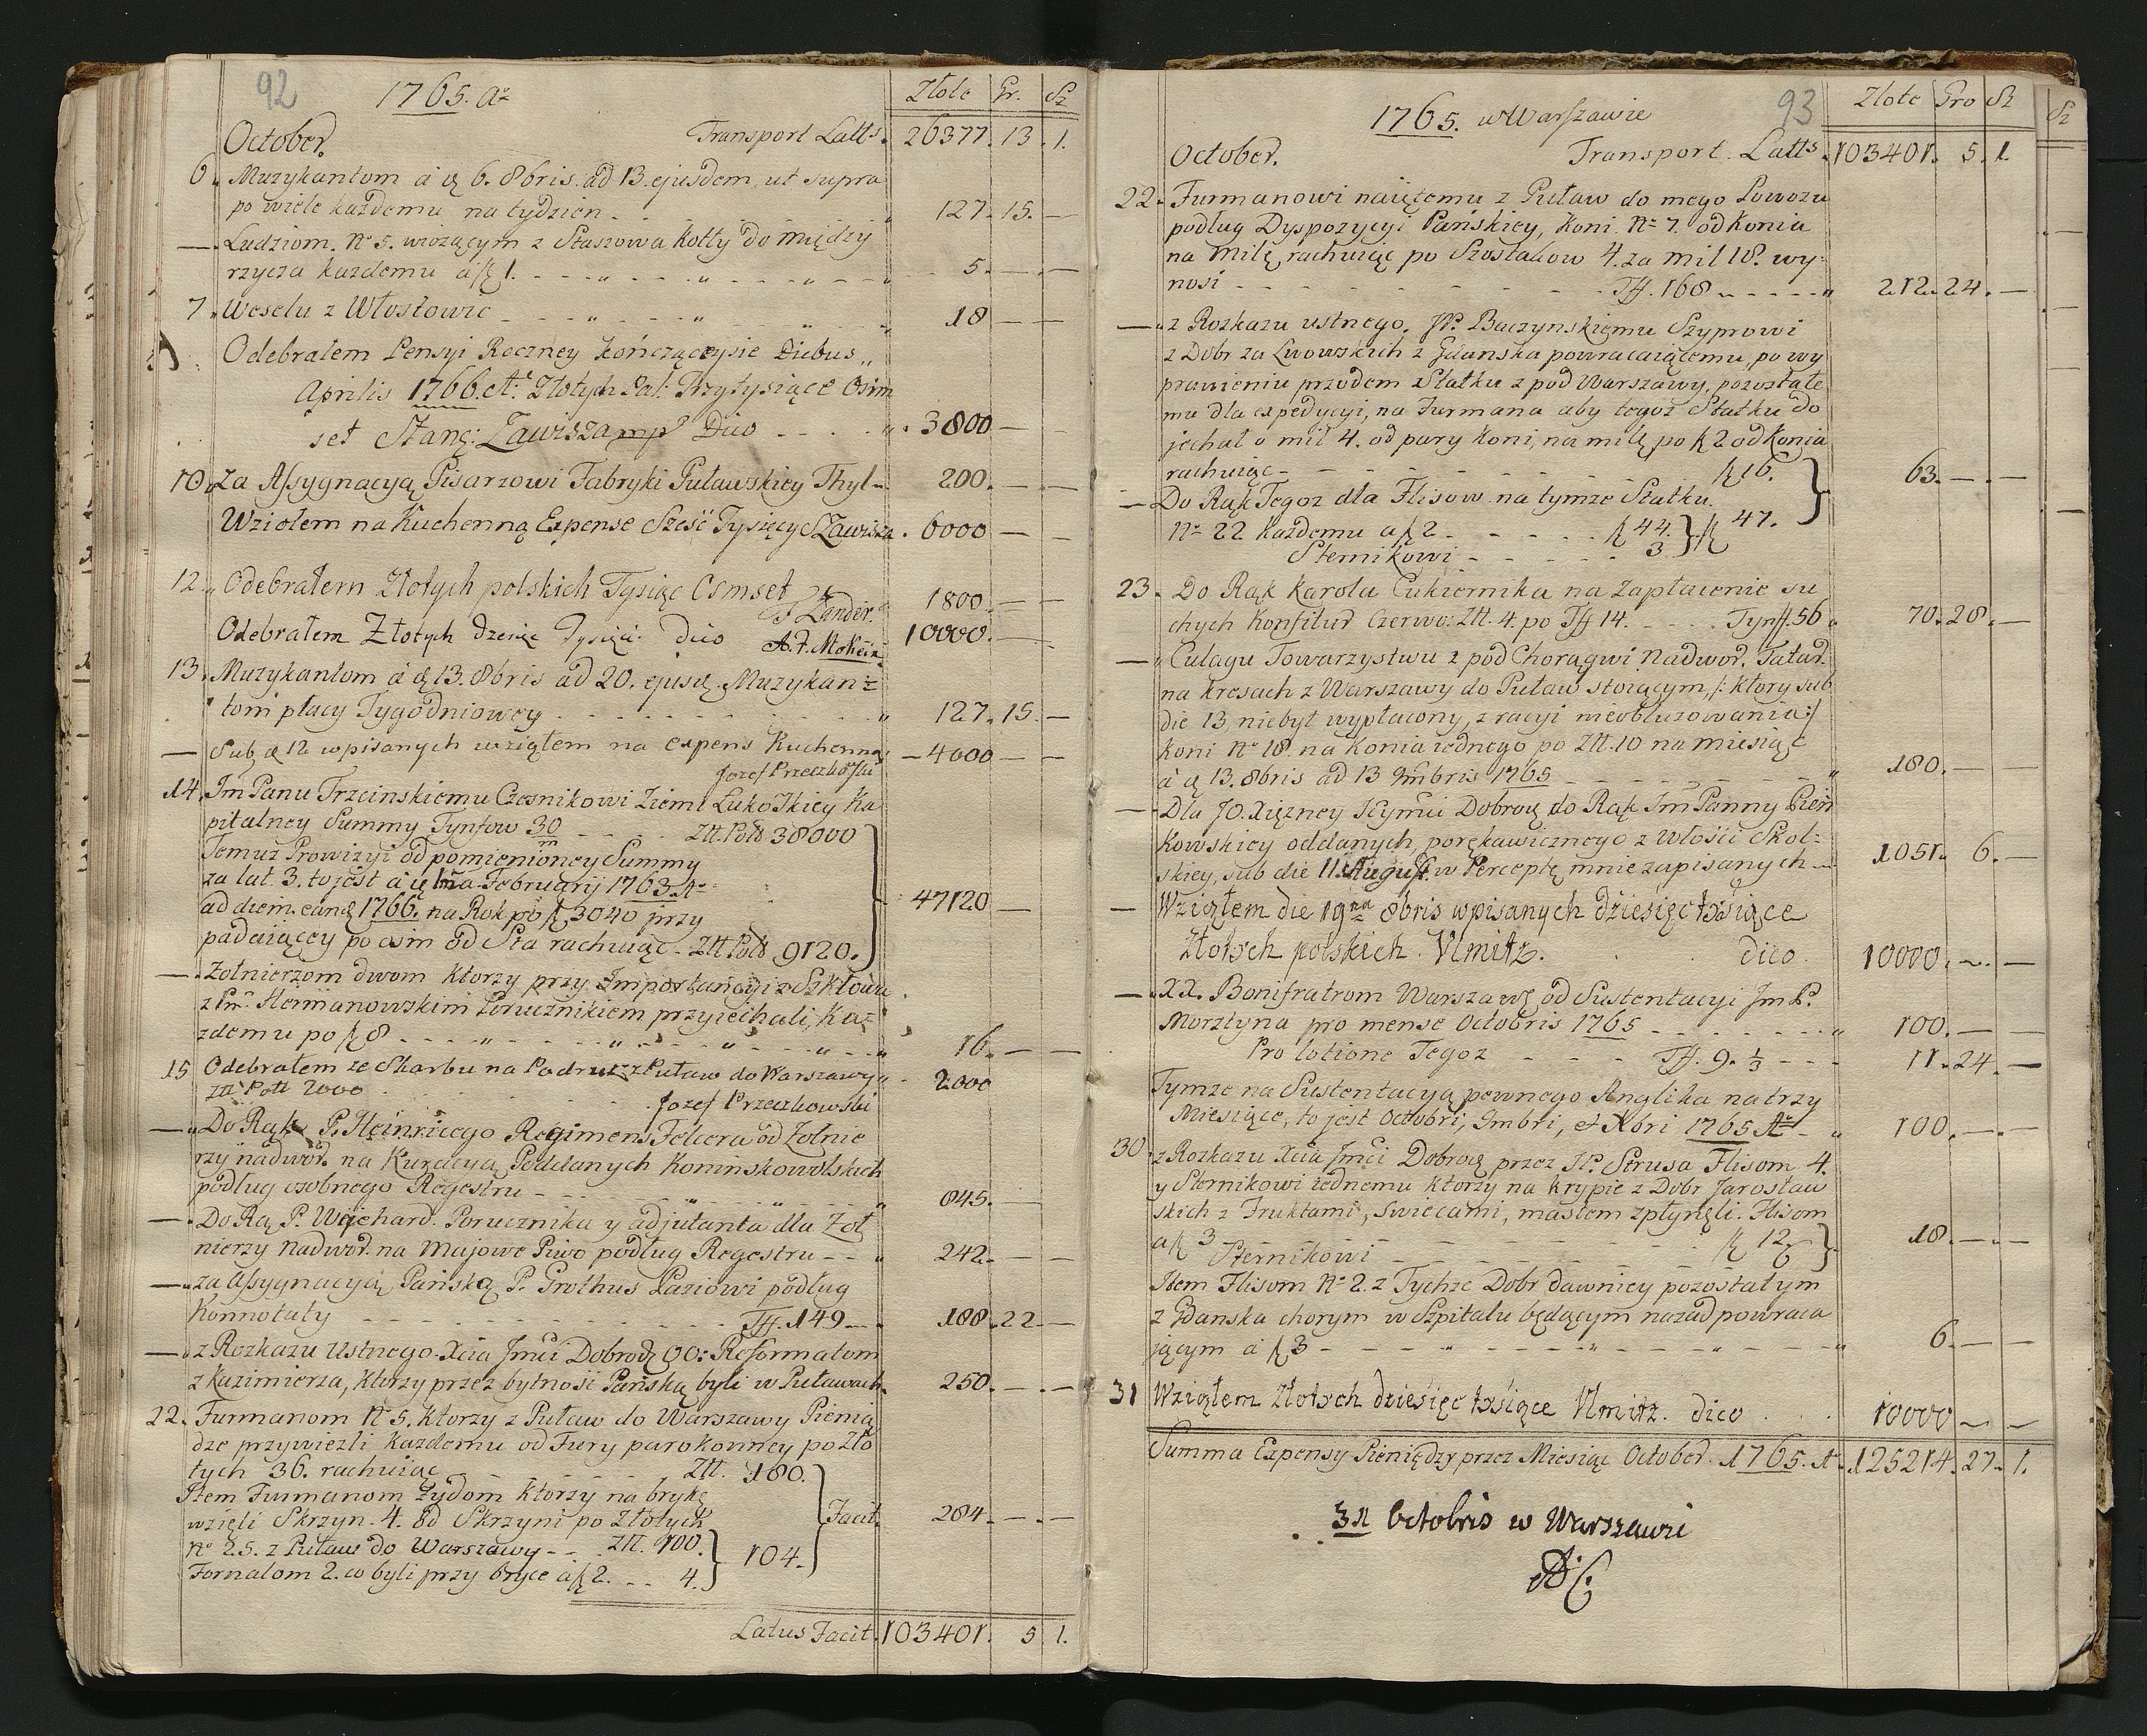 92
1765. Ao
Złote Gr. Sz
October. Transport Latts. 26377. 13. 1.
6. Muzykantom á d 6. 8bris. ad 13. ejusdem, ut supra
po wiele każdemu na tydzien 127. 15. —
— Ludziom. No 5. wiozącym z Staszowa Kotły do Między
rzycza każdemu á 1. 5. — —
7. Weselu z Włostowic 18 — —
Odebrałem Pensyi Roczney kończącęysie Diebus
Aprilis 1766. Ao Złotych Pol: Trzytysiące Osim
set Stang: Zawisza mp Dico 3800 — —
10. Za Assygnacyą Pisarzowi Fabryki Puławskiey Thyl 200. — —
Wziołem na Kuchenną Expense Sześć Tysięcy SZawisza. 6000 — —
12. Odebrałem Złotych polskich Tysiąc Osmset
F Zandir. 1800. — —
Odebrałem Złotych dziesięć Tysiąc: Dico A. F. Mokein 10000. — —
13. Muzykantom á d 13. 8bris ad 20. ejusd. Muzykan=
tom płacy Tygodniowey 127. 15. —
— Sub d 12 wpisanych wziąłem na expens Kuchenną — 4000 — —
Jozef Przeczkowski
14. Im Panu Trzcinskiemu Czesnikowi Ziemi Lukoskiey Ka
pitalney Summy Tynfow 30 m Ztt. Pols 38000
Temuz Prowizyi od pomienioney Summy
za lat. 3. to jest á d 1ma Februarij 1763. Ao
ad diem. eand 1766. na Rok po 3040 przy 47120 —
padaiącey po osim od Sta rachuiąc. Ztt Pols 9120.
— Zołnierzom dwom ktorzy przy Importancyi z Szkłowa
z Pm. Hermanowskim Porucznikiem przyiechali, Ka=
zdemu po 8 16. — —
15 Odebrałem ze Skarbu na Podruz z Puław do Warszawy 2000
Ztt Polt 2000
Jozef Przeczkowski
— Do Rąk P. Heinricego Regimens Felcera od Zołnie
rzy nadwor. na Kuracyą Poddanych Koninskowolskich
podług osobnego Regestru 845. —
— Do Rą P. Weichard. Porucznika y adjutanta dla Zoł
nierzy Nadwor. na Majowe Piwo podług Regestru 242. — —
— za Assygnacyą Panską P. Grothus Paziowi podług
Konnotaty Tff. 149 188. 22. —
— z Rozkazu Ustnego Xcia Jmci Dobrodz OO: Reformatom
z Kazimierza, ktorzy przez bytność Panską byli w Puławach. 250. — —
22. Furmanom No 5. ktorzy z Puław do Warszawy Pienią
dze przywiezli każdemu od Fury parokonney po Zło
tych 36. rachuiąc Ztt. 180.
Item Furmanom Zydom ktorzy na brykę
wzięli Skrzyn. 4. od Skrzyni po Złotych Facit 284. — —
No 25. z Puław do Warszawy Ztt. 100. 104.
Fornalom 2. co byli przy bryce á 2. 4.
Latus Facit. 103401. 5. 1.
1765. w Warszawie 93
Złote Gro Sz
Sz
October. Transport. Latts. 103401. 5. 1.
22. Furmanowi naiętemu z Puław do mego Powozu
podług Dyspozycyi Pańskiey, Koni. No 7. od Konia
na Milę rachuiąc po Szostakow 4. za mil 18. wy=
nosi Tff. 168 212. 24. —
— z Rozkazu ustnego. JP. Baczynskiemu Szyprowi
z Dobr za Lwowskich z Gdanska powracaiącemu, po wy
prawieniu przodem Statku z pod Warszawy, pozostałe
mu dla expedycyi, na Furmana aby tegoż Statku do
jechał o mil 4. od pary Koni, na milę po 2 od Konia
rachuiąc 16. 63. — —
— Do Rąk Tegoz dla Flisow na tymze Statku.
No 22 każdemu a 2 44. 47.
Sternikowi 3.
23. Do Rąk Karola Cukiernika na Zapłacenie su
chych Konfitur Czerwo: Ztt. 4. po Tff 14. Tynff. 56 70. 28. —
— Culagu Towarzystwu z pod Chorągwi Nadwor. Tatar.
na kresach z Warszawy do Puław stoiącym, /: ktory sub
die 13, niebył wypłacony, z racyi nieobluzowania :/
koni No 18. na Konia iednego po Ztt. 10 na miesiąc
á d 13. 8bris ad 13 9mbris 1765 180. — —
— Dla JO. Xiężney Jeymci Dobrodz do Rąk Im Panny Pień
kowskiey oddanych, porękawicznego z Włości Skol=
skiey, sub die 11. August. w Perceptę mnie zapisanych 1051. 6. —
— Wziąłem die 19na 8bris wpisanych dziesięc tysiące
Złotych polskich. Ulmitz. dico. 10000. — —
— XX. Bonifratrom Warszaw od Sustentacyi Jm P.
Morztyna pro mense Octobris 1765 100. — —
Pro lotione Tegoz Tff. 9. 1/3 11. 24. —
Tymze na Sustentacyą pewnego Anglika na trzy
Miesiące, to jest Octobri, 9mbri, et Xbri 1765 Ao 100. — —
30. z Rozkazu Xcia Jmci Dobrodz przez JP. Strusa Flisom 4.
y Sternikowi iednemu ktorzy na krypie z Dobr Jarosław
skich z Fruktami, Swiecami, masłem zpłynęli. Flisom
a 3 12. 18. — —
Sternikowi 6
Item Flisom No 2. z Tychze Dobr dawniey pozostałym
z Gdanska chorym w Szpitalu będącym nazad powraca
jącym á 3 6. — —
31 Wziąłem Złotych dziesięc tysiące Ulmitz. dico 10000 — —
Summa Expensy Pieniędzy przez Miesiąc October. 1765. Ao 125214. 27. 1.
31 Octobris w Warszawie